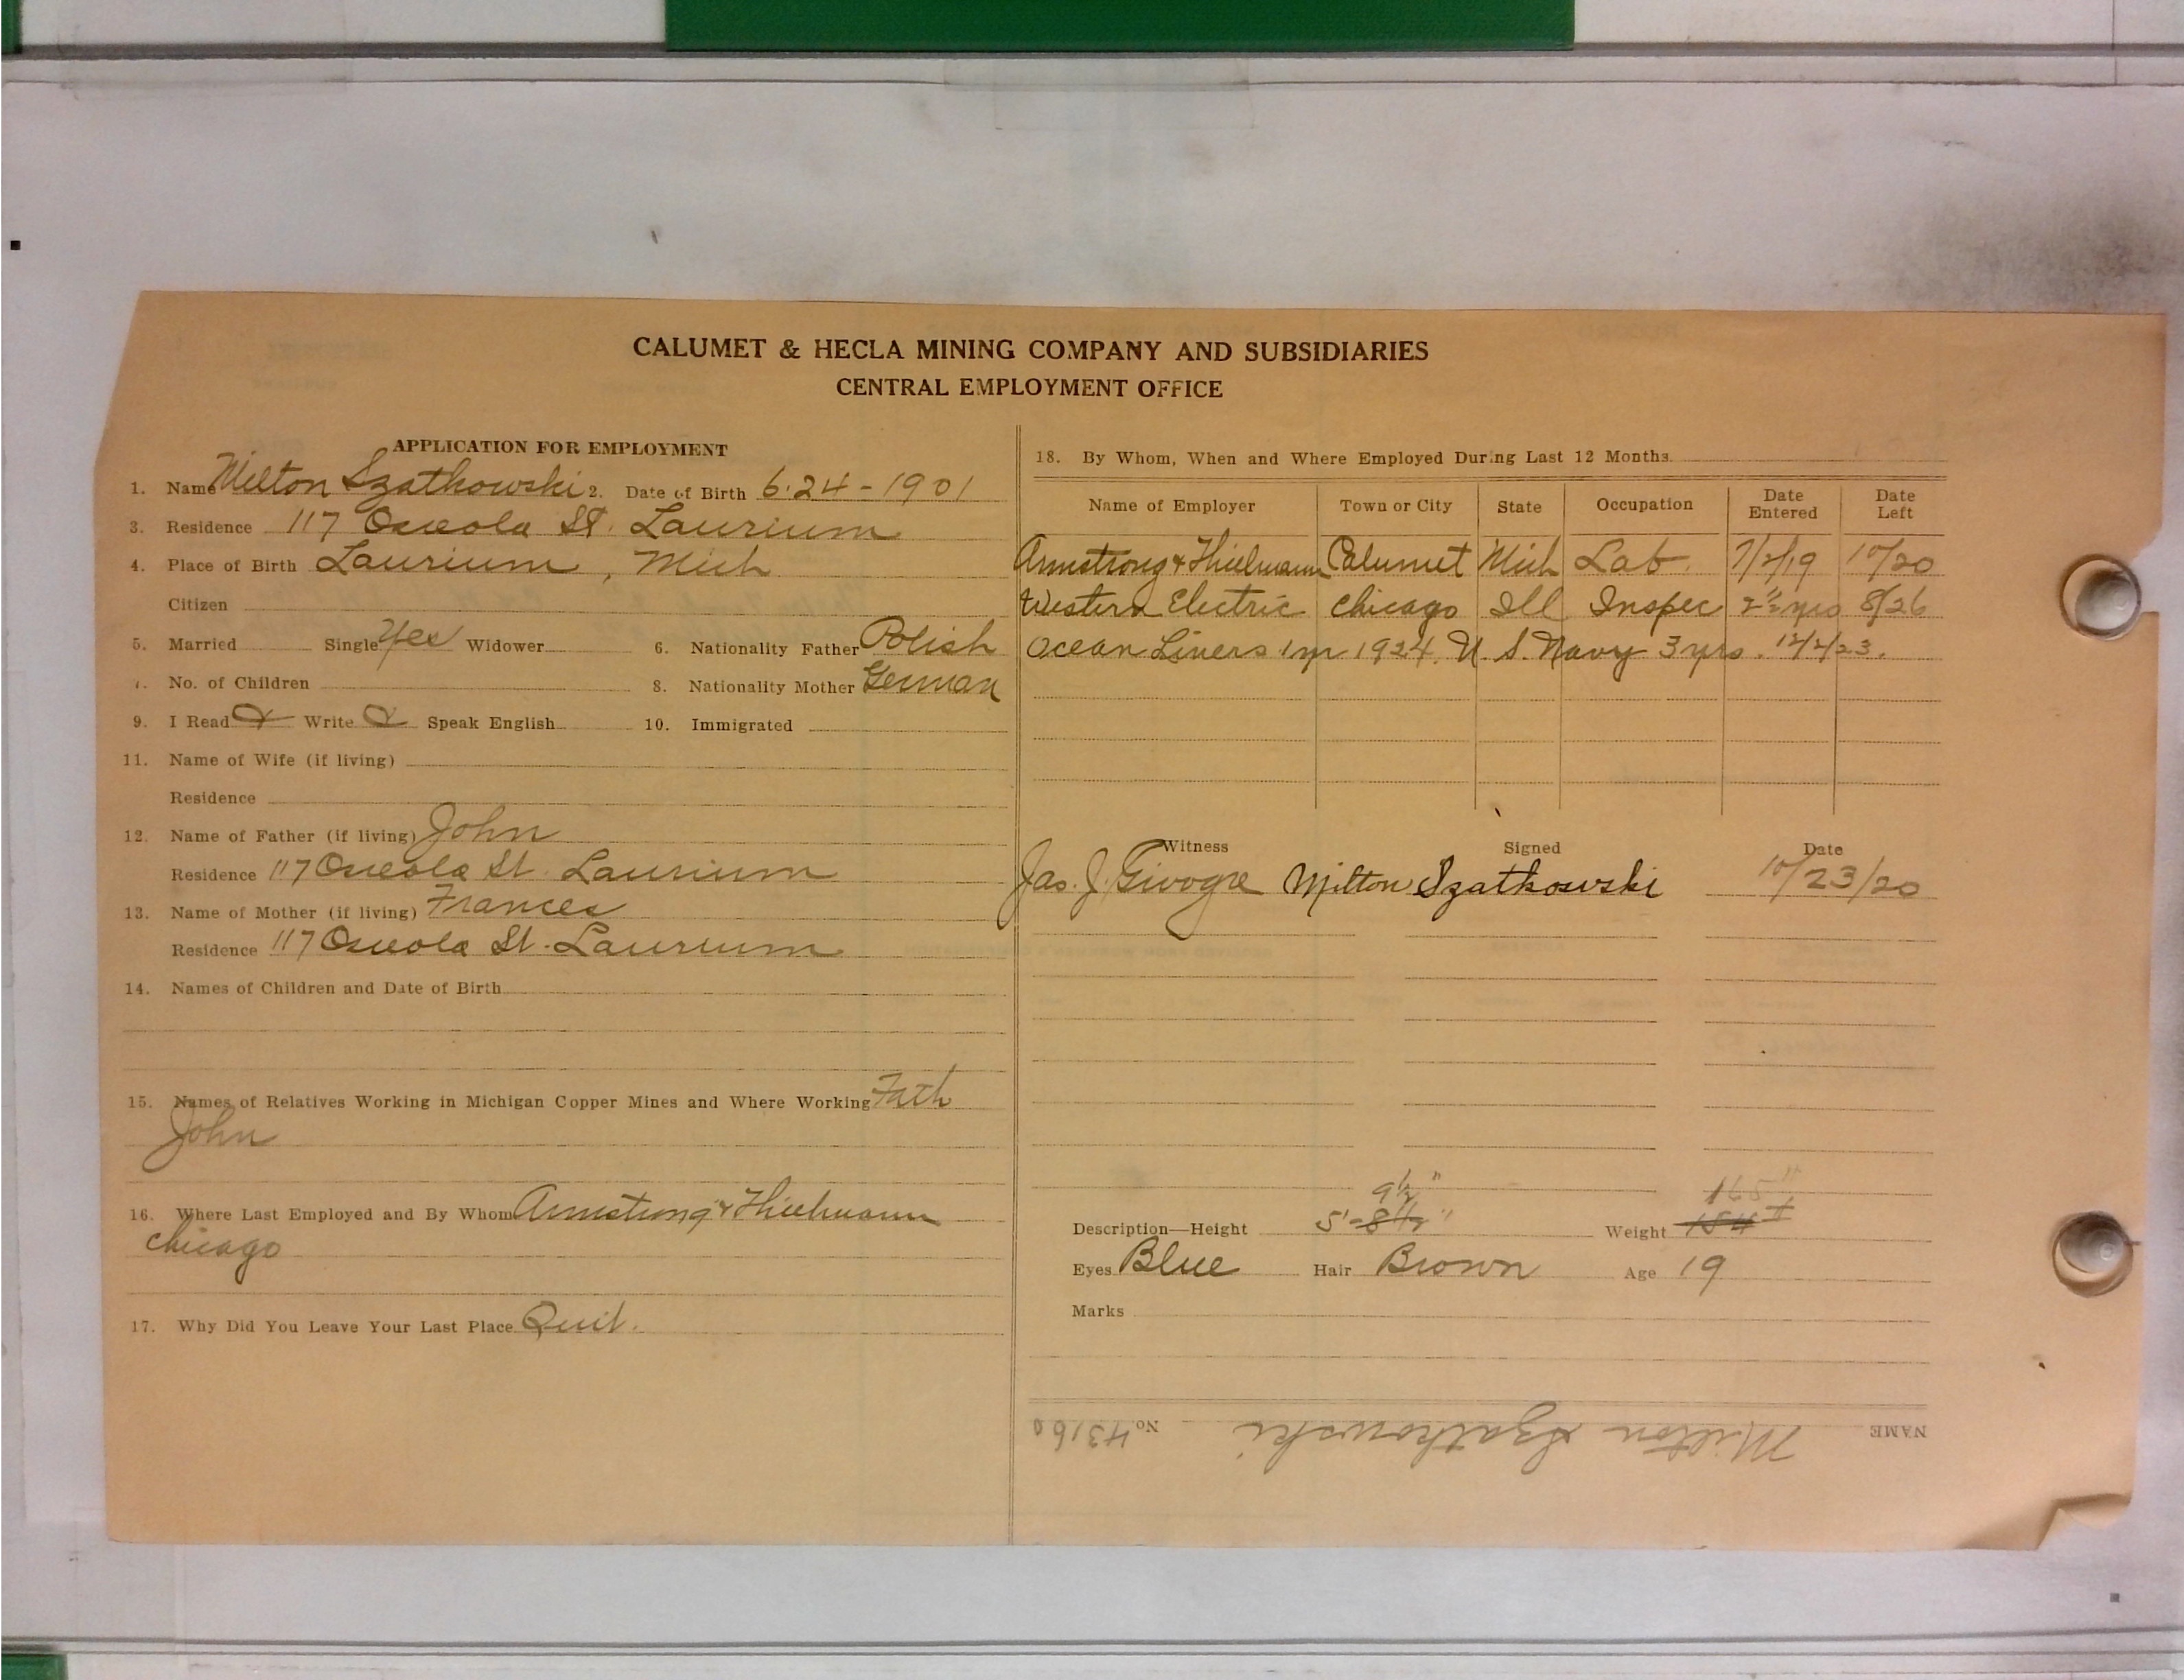 CALUMET & HECLA MINING COMPANY AND SUBSIDIARIES
CENTRAL EMPLOYMENT OFFICE
APPLICATION FOR EMPLOYMENT
1. Name Milton Szatkowski 2. Date of Birth 6-24-1901
3. Residence 117 Osceola St. Laurium
4. Place of Birth Laurium, Mich
Citizen
5. Married Single Yes Widower 6. Nationality Father Polish
7. No. of Children 8. Nationality Mother German
9. I Read Write Speak English 10. Immigrated
11. Name of Wife (if living)
Residence
12. Name of Father (if living) John
Residence 117 Osceola St. Laurium
13. Name of Mother (if living) Frances
Residence 117 Osceola St. Laurium
14. Names of Children and Date of Birth
15. Names of Relatives Working in Michigan Copper Mines and Where Working Fath
John
16. Where Last Employed and By Whom Armstrong & Thielmann
Chicago
17. Why Did You Leave Your Last Place Quit.
18. By Whom, When and Where Employed During Last 12 Months
Name of Employer Town or City State Occupation Date Entered Date Left
Armstrong & Thielmann Calumet Mich Lab. 7/2/19 10/20
Western Electric Chicago Ill Inspec 2½ yrs 8/26
Ocean Liners 1 yr 1924. U. S. Navy 3 yrs. 12/2/23.
Witness Signed Date
Jas. J. Givogre Milton Szatkowski 10/23/20
9½" 165#
Description—Height 5'-8½" Weight
Eyes Blue Hair Brown Age 19
Marks
NAME Milton Szatkowski No. 43160